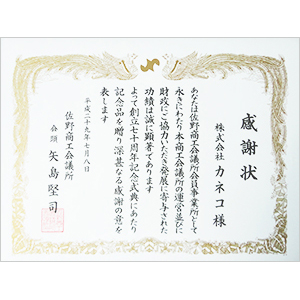 感謝状
株式会社 カネコ様
あなたは佐野商工会議所会員事業所として
永きにわたり本商工会議所の運営並びに
財政にご協力いただき発展に寄与された
功績は誠に顕著であります
よって創立七十周年記念式典にあたり
記念品を贈り深甚なる感謝の意を
表します
平成二十九年七月八日
佐野商工会議所
会頭 矢島堅司